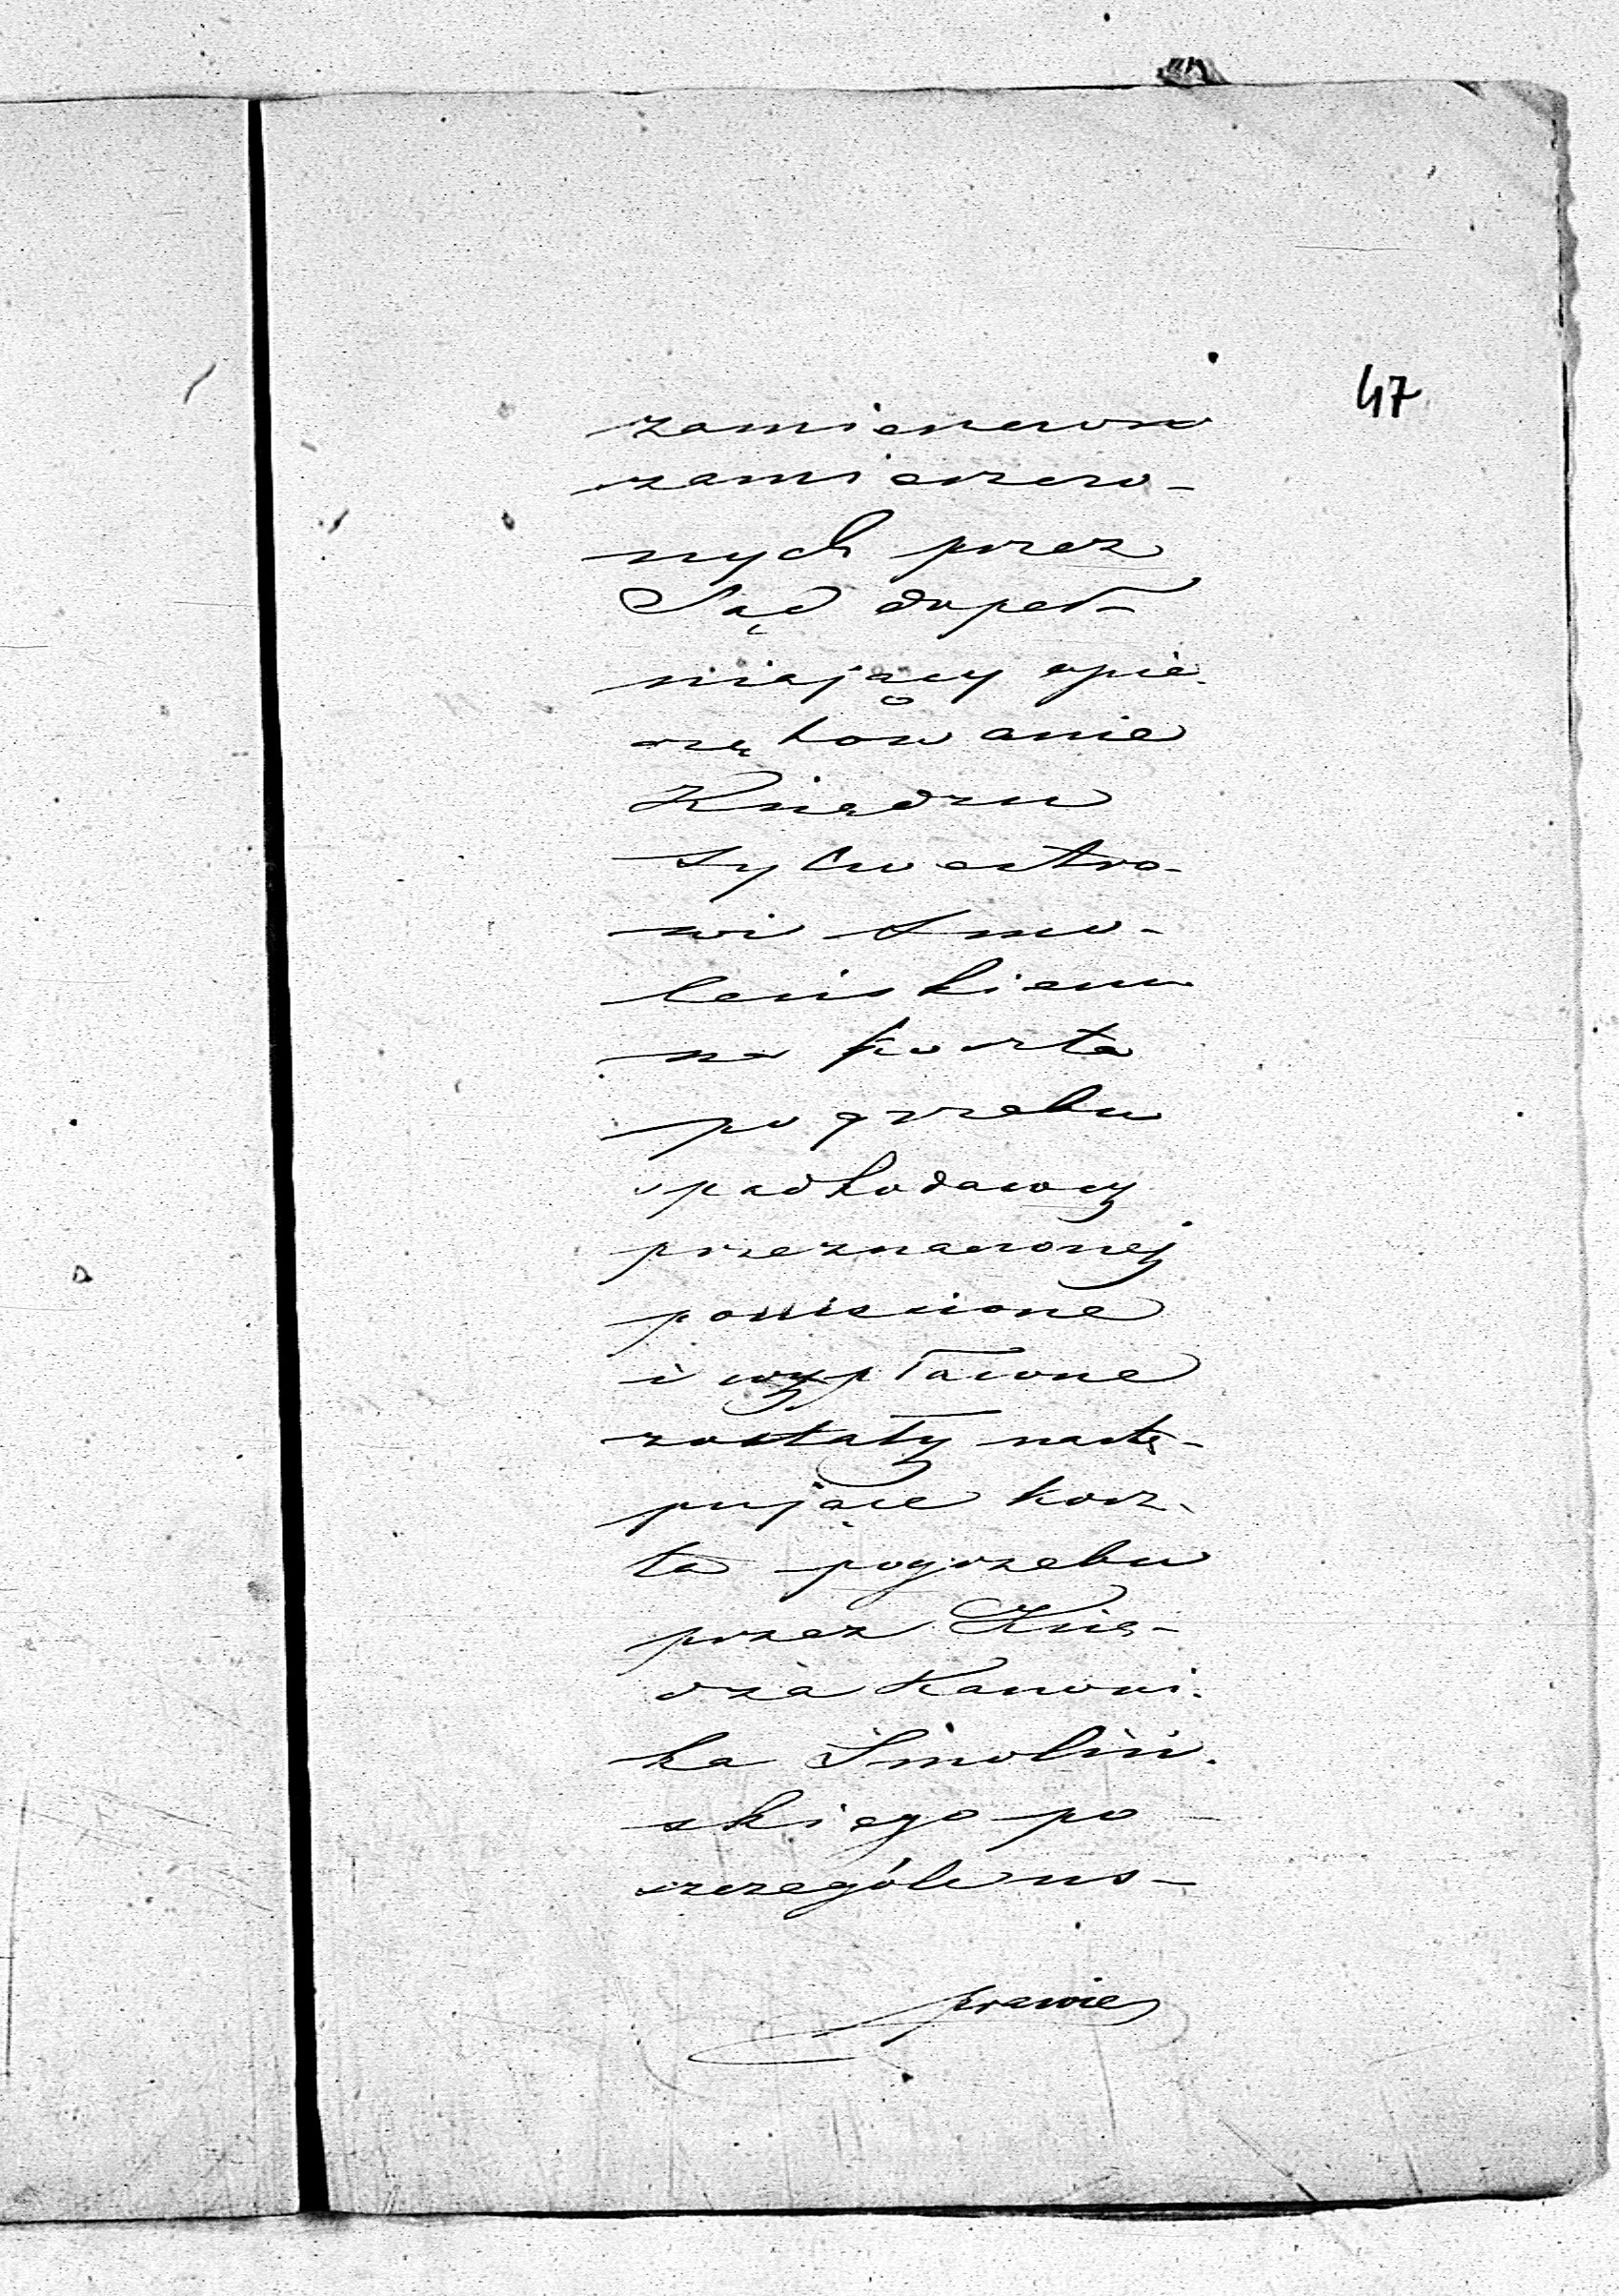 47
zamienowo
zamieszo-
nych przez
Sąd dopeł-
niający opie-
czętowanie
Księdzu
Sylwestro-
wi Smo-
leńskiemu
na koszta
pogrzebu
spadkodawcy
przeznaczonej
poniesione
i wypłacone
zostały nastę-
pujące kosz-
ta pogrzebu
przez Księ-
dza Kanoni-
ka Smoliń-
skiego po
szczególno-
prawie